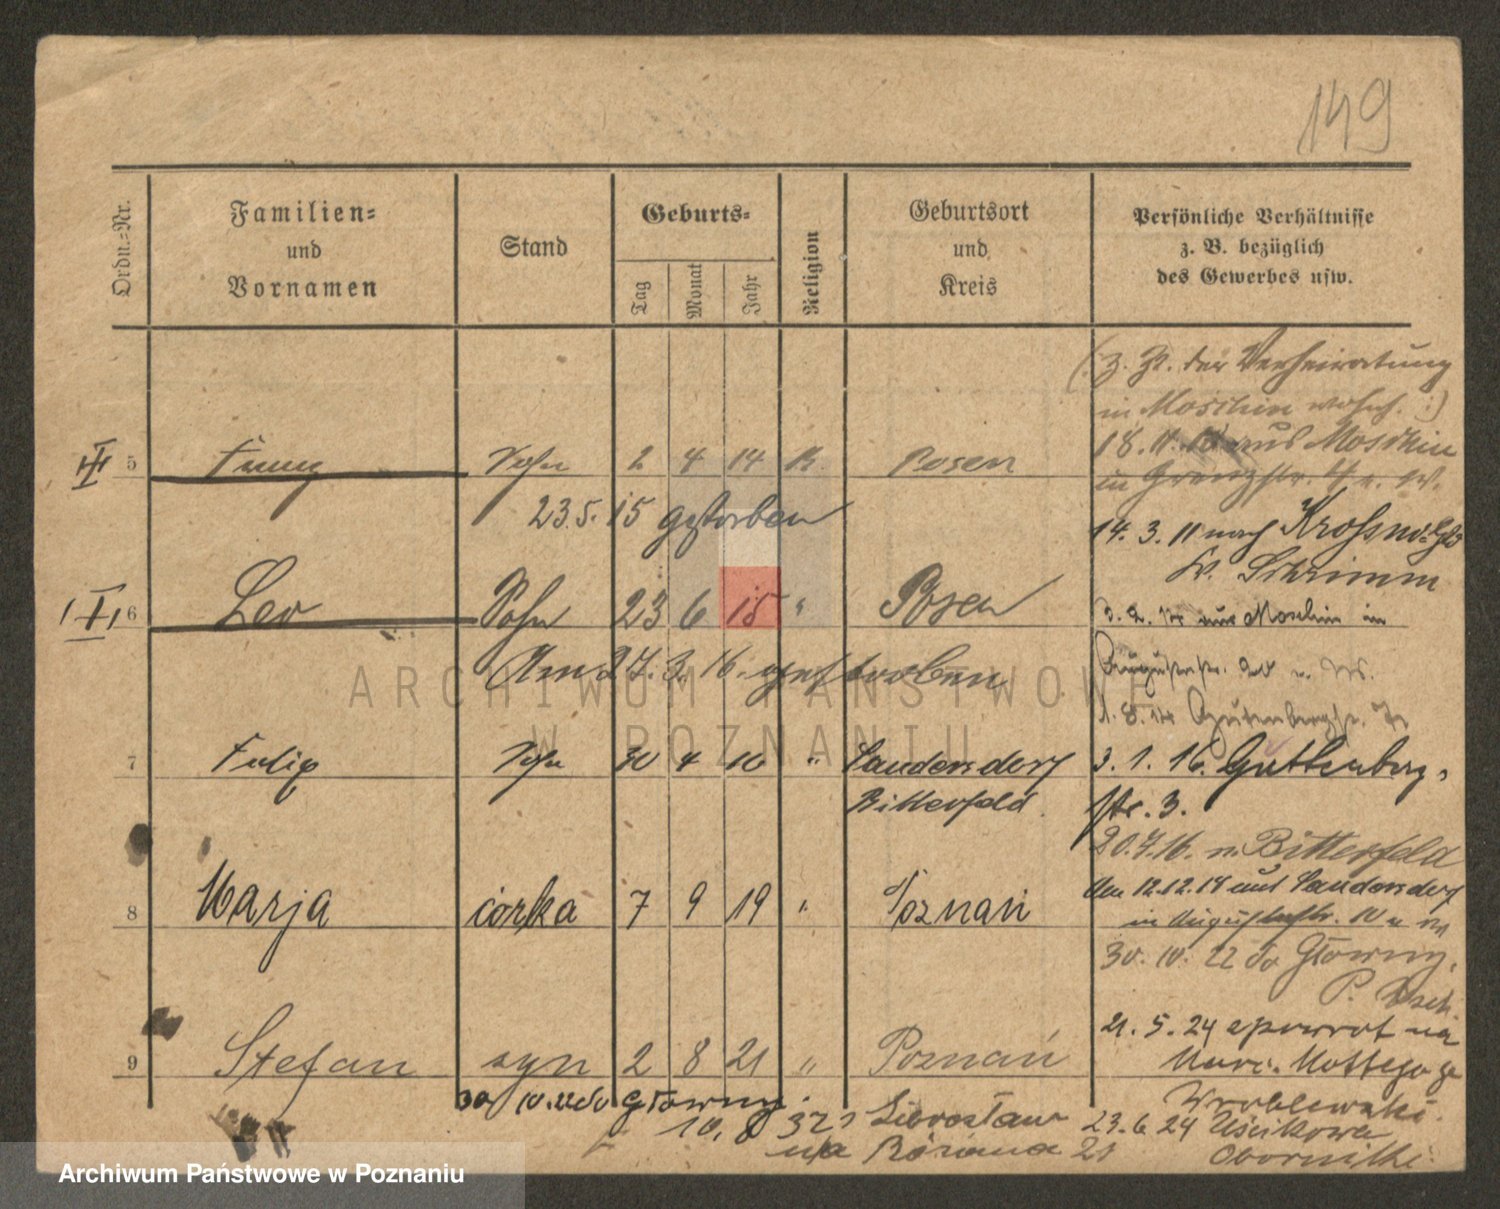 149
Ordn.-Nr.
Familien-
und
Vornamen
Stand
Geburts-
Tag
Monat
Jahr
Religion
Geburtsort
und
Kreis
Persönliche Verhältnisse
z. B. bezüglich
des Gewerbes usw.
(z. Zt. der Verheiratung
in Moschin wohnh. :)
18. 11. aus Moschin
in Grenzstr.
5 Sohn 2 4 14 K. Posen
23.5.15 gestorben
14. 3. 11 nach
Kr. Schrimm
6 Leo Sohn 23 6 15 " Posen
3. 2. 14 aus Moschin in
Am 27. 3. 16. gestorben
Augustastr.
1. 8. 14 Gutenbergstr.
7 Sohn 30 4 16 " Sandersdorf
Bitterfeld
3. 1. 16. Guttenberg-
str. 3.
20.7.16. n. Bitterfeld
8 Marja córka 7 9 19 " Poznań
Am 12.12.19 aus Sandersdorf
in Augustastr. 10
30. 10. 22 do Główny,
P. Wsch.
9 Stefan syn 2 8 21 " Poznań
21. 5. 24 spowrot na
Marc. Mottego
30 10.22 do Główny.
Wroblewski.
10. 8 32
na Różana 21
23. 6 24 Uścikowa
Oborniki
ARCHIWUM PAŃSTWOWE
W POZNANIU
Archiwum Państwowe w Poznaniu